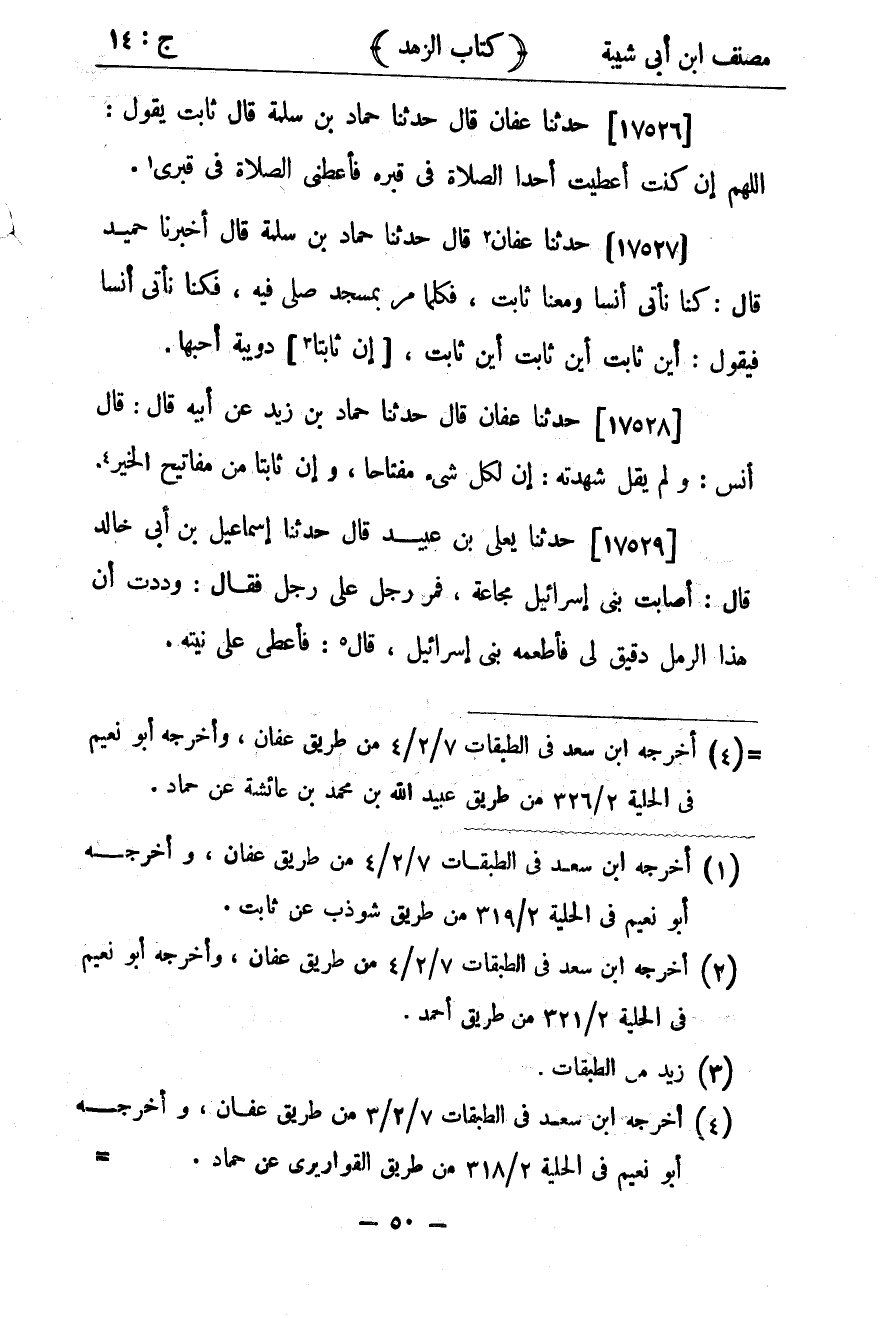 مصنف ابن أبى شيبة ﴿ كتاب الزهد ﴾ ج : ١٤
[١٧٥٢٦] حدثنا عفان قال حدثنا حماد بن سلمة قال ثابت يقول :
اللهم إن كنت أعطيت أحدا الصلاة فى قبره فأعطنى الصلاة فى قبرى١ .
[١٧٥٢٧] حدثنا عفان٢ قال حدثنا حماد بن سلمة قال أخبرنا حميد
قال : كنا نأتى أنسا ومعنا ثابت ، فكلما مر بمسجد صلى فيه ، فكنا نأتى أنسا
فيقول : أين ثابت أين ثابت أين ثابت ، [ إن ثابتا٣ ] دويبة أحبها .
[١٧٥٢٨] حدثنا عفان قال حدثنا حماد بن زيد عن أبيه قال : قال
أنس : و لم يقل شهدته : إن لكل شىء مفتاحا ، و إن ثابتا من مفاتيح الخير٤.
[١٧٥٢٩] حدثنا يعلى بن عبيد قال حدثنا إسماعيل بن أبى خالد
قال : أصابت بنى إسرائيل مجاعة ، فمر رجل على رجل فقال : وددت أن
هذا الرمل دقيق لى فأطعمه بنى إسرائيل ، قال٥ : فأعطى على نيته .
=(٤) أخرجه ابن سعد فى الطبقات ٤/٢/٧ من طريق عفان ، وأخرجه أبو نعيم
فى الحلية ٣٢٦/٢ من طريق عبيد الله بن محمد بن عائشة عن حماد .
(١) أخرجه ابن سعد فى الطبقات ٤/٢/٧ من طريق عفان ، و أخرجه
أبو نعيم فى الحلية ٣١٩/٢ من طريق شوذب عن ثابت .
(٢) أخرجه ابن سعد فى الطبقات ٤/٢/٧ من طريق عفان ، وأخرجه أبو نعيم
فى الحلية ٣٢١/٢ من طريق أحمد .
(٣) زيد من الطبقات .
(٤) أخرجه ابن سعد فى الطبقات ٣/٢/٧ من طريق عفان ، و أخرجه
أبو نعيم فى الحلية ٣١٨/٢ من طريق القواريرى عن حماد . =
– ٥٠ –